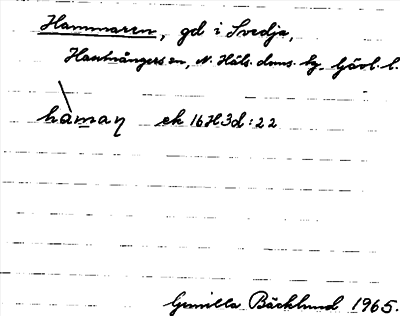 Hammaren, gd i Svedja,
Hanebo sn, N. Häls. doms. hg. Gävl. l.
hàmaŋ ek 16H3d:22
Gunilla Bäcklund 1965.